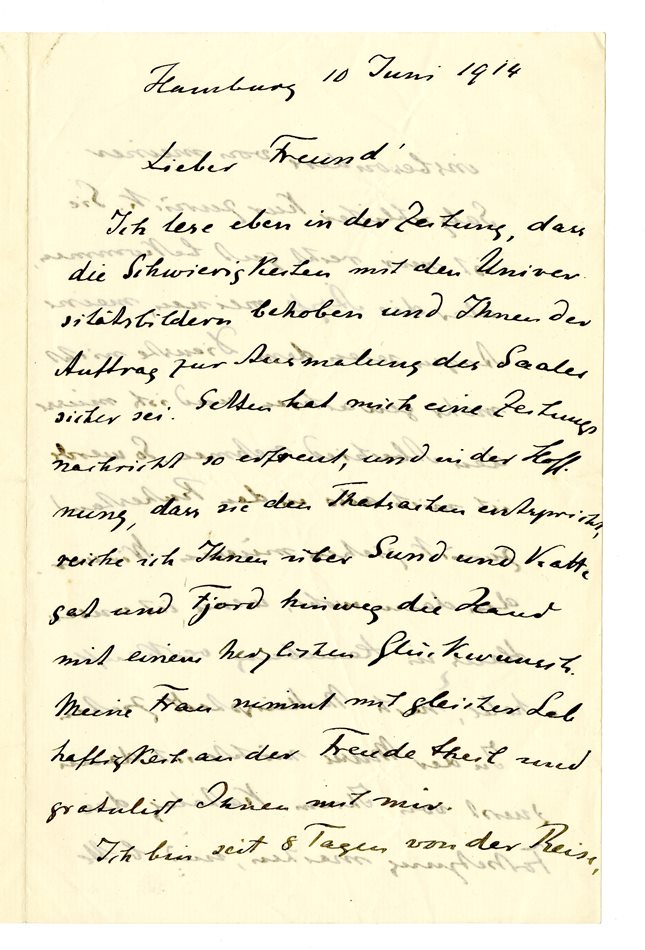 Hamburg 10 Juni 1914
Lieber Freund!
Ich lese eben in der Zeitung, dass
die Schwierigkeiten mit den Univer-
sitätsbildern behoben und Ihnen der
Auftrag zur Ausmalung des Saales
sicher sei. Selten hat mich eine Zeitungs
nachricht so erfreut, und in der Hoff-
nung, dass sie den Thatsachen entspricht,
reiche ich Ihnen über Sund und Katte
gat und Fjord hinweg die Hand
mit einem herzlichen Glückwunsch.
Meine Frau nimmt mit gleicher Leb
haftigkeit an der Freude theil und
gratulirt Ihnen mit mir.
Ich bin seit 8 Tagen von der Reise,